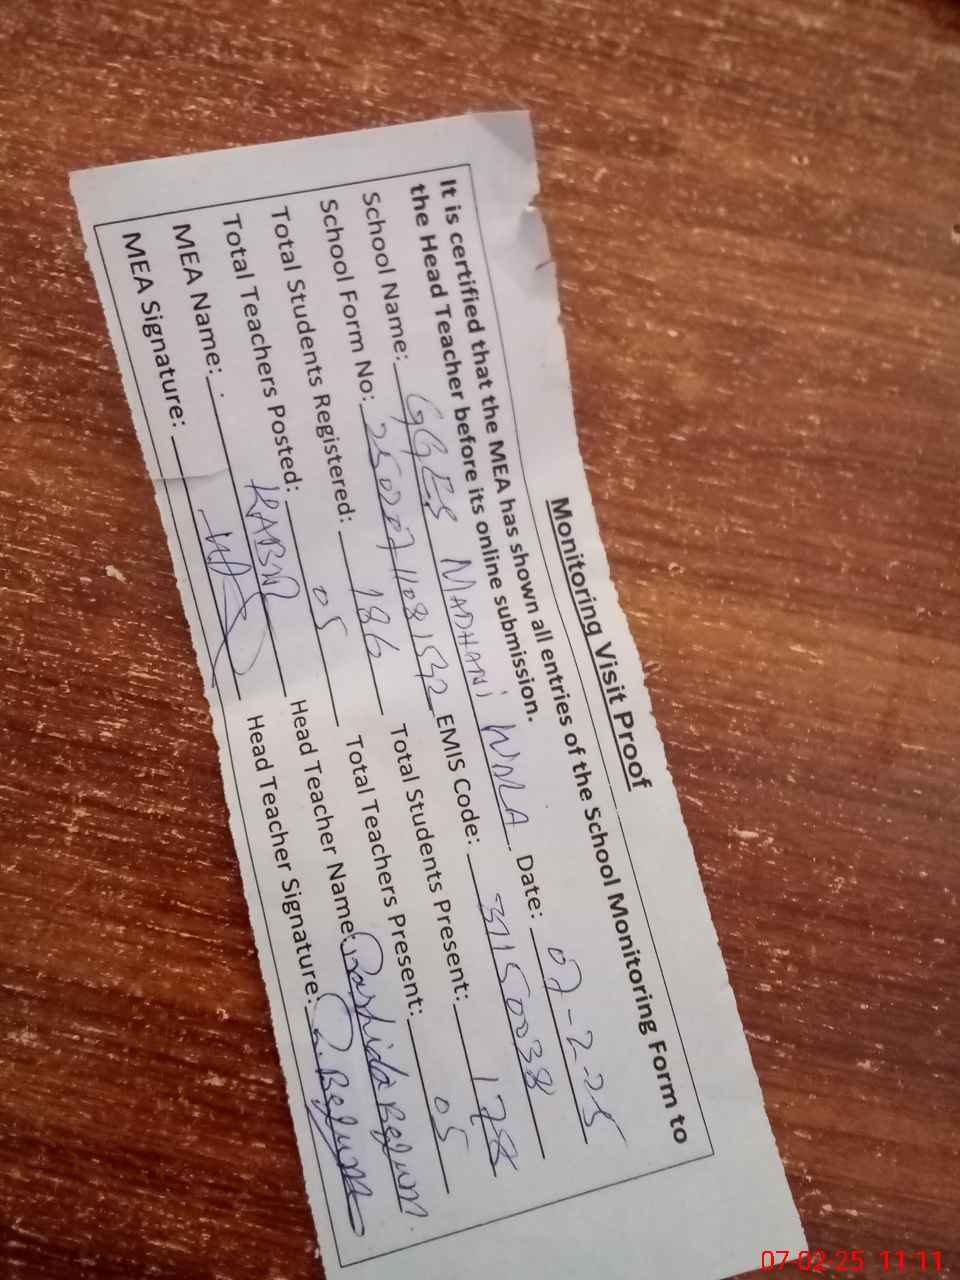 Monitoring Visit Proof
It is certified that the MEA has shown all entries of the School Monitoring Form to
the Head Teacher before its online submission.
School Name: GGES MADHANI WALA Date: 07-2-25
School Form No: EMIS Code: 31150038
Total Students Registered: 186 Total Students Present: 178
Total Teachers Posted: 05 Total Teachers Present: 05
MEA Name: Head Teacher Name: Rashida Begum.
MEA Signature: Head Teacher Signature: R.Begum
07-02-25 11:11